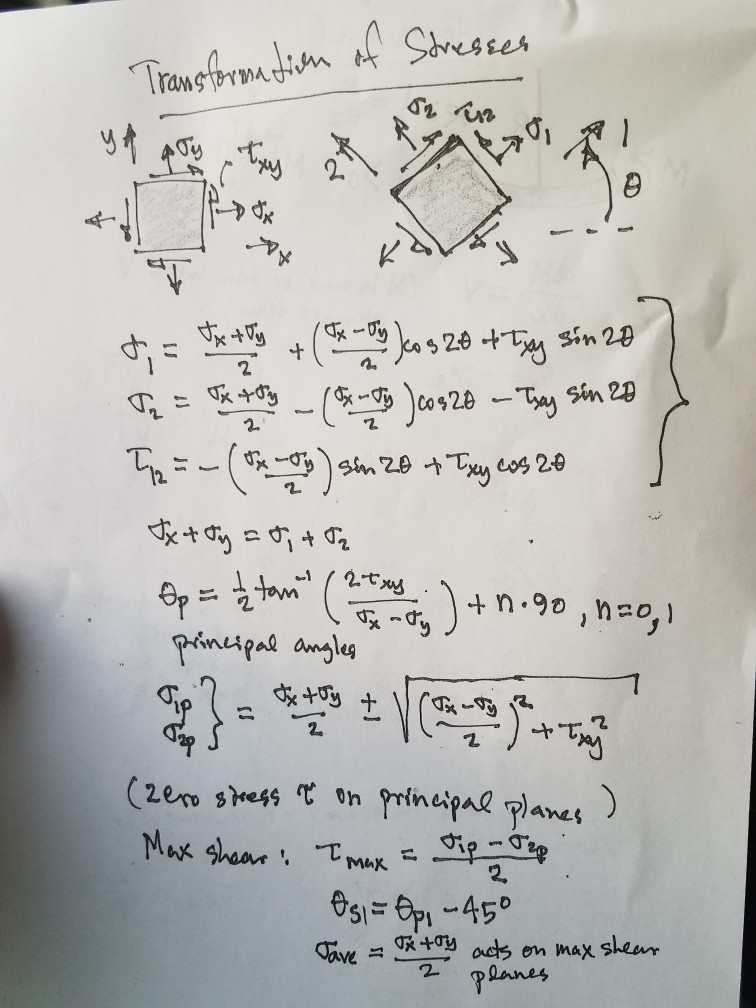 Transformation of Stresses
y σy τxy σx x
2 σ2 τ12 σ1 1 θ
σ1 = (σx+σy)/2 + ((σx-σy)/2) cos 2θ + τxy sin 2θ
σ2 = (σx+σy)/2 - ((σx-σy)/2) cos 2θ - τxy sin 2θ
τ12 = - ((σx-σy)/2) sin 2θ + τxy cos 2θ
σx + σy = σ1 + σ2
θp = 1/2 tan⁻¹ (2τxy/(σx-σy)) + n·90, n=0,1
principal angles
σ1p σ2p } = (σx+σy)/2 ± √(((σx-σy)/2)² + τxy²)
(zero stress τ on principal planes)
Max shear: τmax = (σ1p - σ2p)/2
θs1 = θp1 - 45°
σave = (σx+σy)/2 acts on max shear
planes